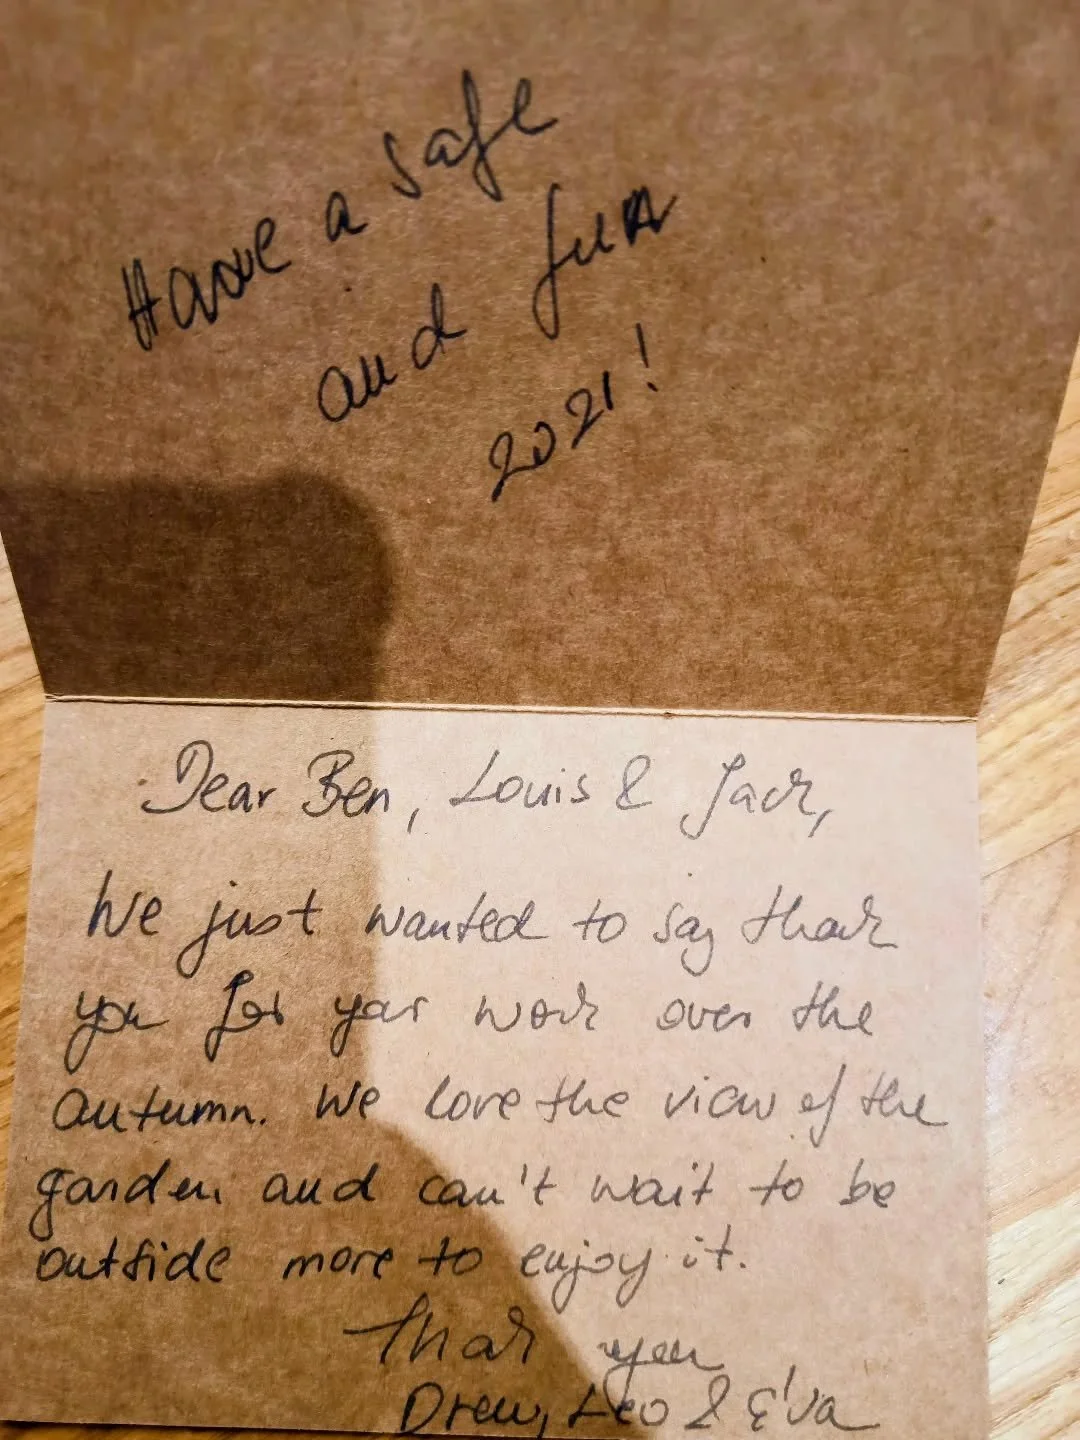 Have a safe
and fun
2021!
Dear Ben, Louis & Jack,
We just wanted to say thank
you for your work over the
autumn. We love the view of the
garden and can't wait to be
outside more to enjoy it.
Thank you
Drew, Leo & Eva